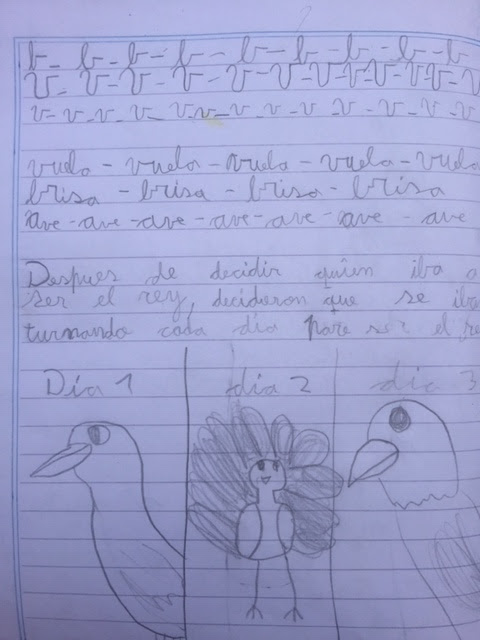 b - b - b - b - b - b - b - b - b
V - V - V - V - V - V - V - V - V - V - V
v - v - v - v - v v - v - v - v - v - v - v - v
vuelo - vuela - vuelo - vuela - vuelo
brisa - brisa - brisa - brisa
ave - ave - ave - ave - ave - ave - ave
Despues de decidir quien iba a
ser el rey, decidieron que se iba
turnando cada dia para ser el re
Día 1 dia 2 dia 3